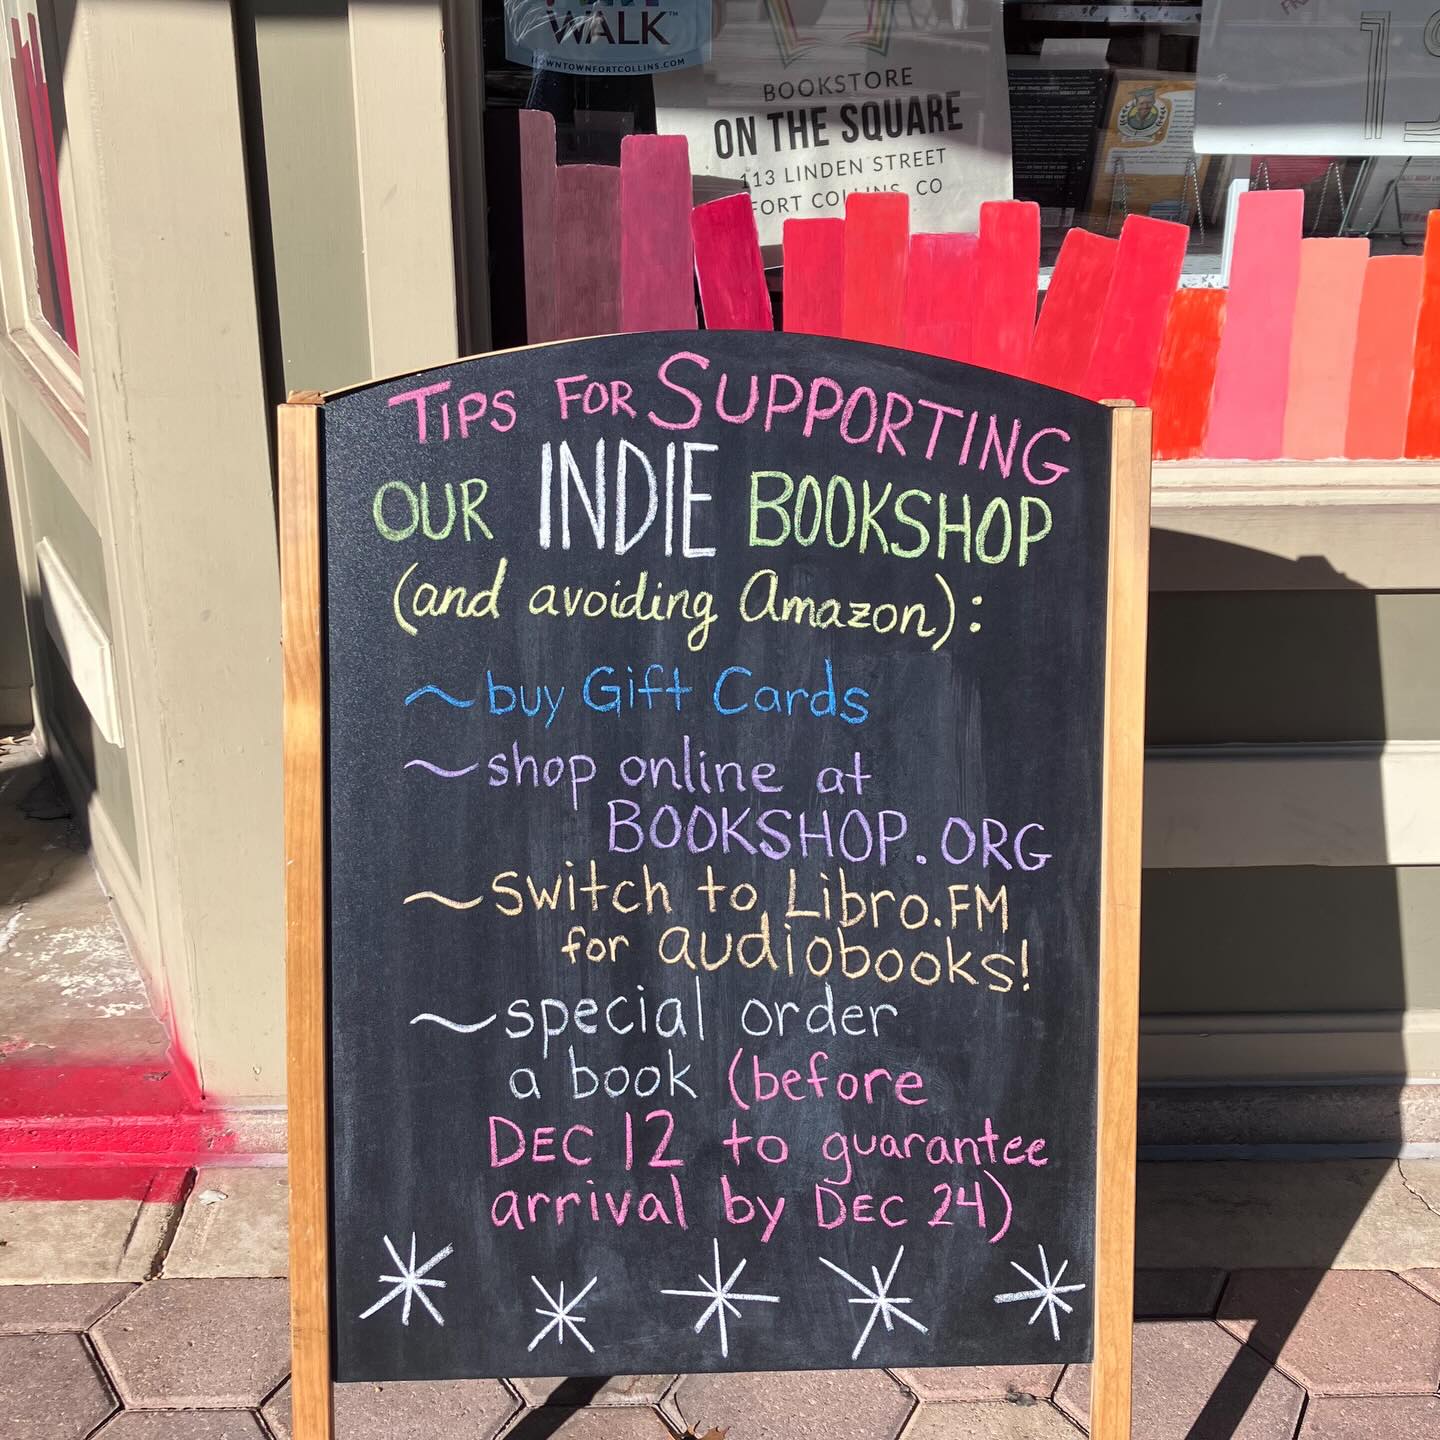 WALK™
DOWNTOWNFORTCOLLINS.COM
BOOKSTORE
ON THE SQUARE
113 LINDEN STREET
FORT COLLINS, CO
TIPS FOR SUPPORTING
OUR INDIE BOOKSHOP
(and avoiding Amazon):
~buy Gift Cards
~shop online at
BOOKSHOP.ORG
~switch to Libro.FM
for audiobooks!
~special order
a book (before
DEC 12 to guarantee
arrival by DEC 24)